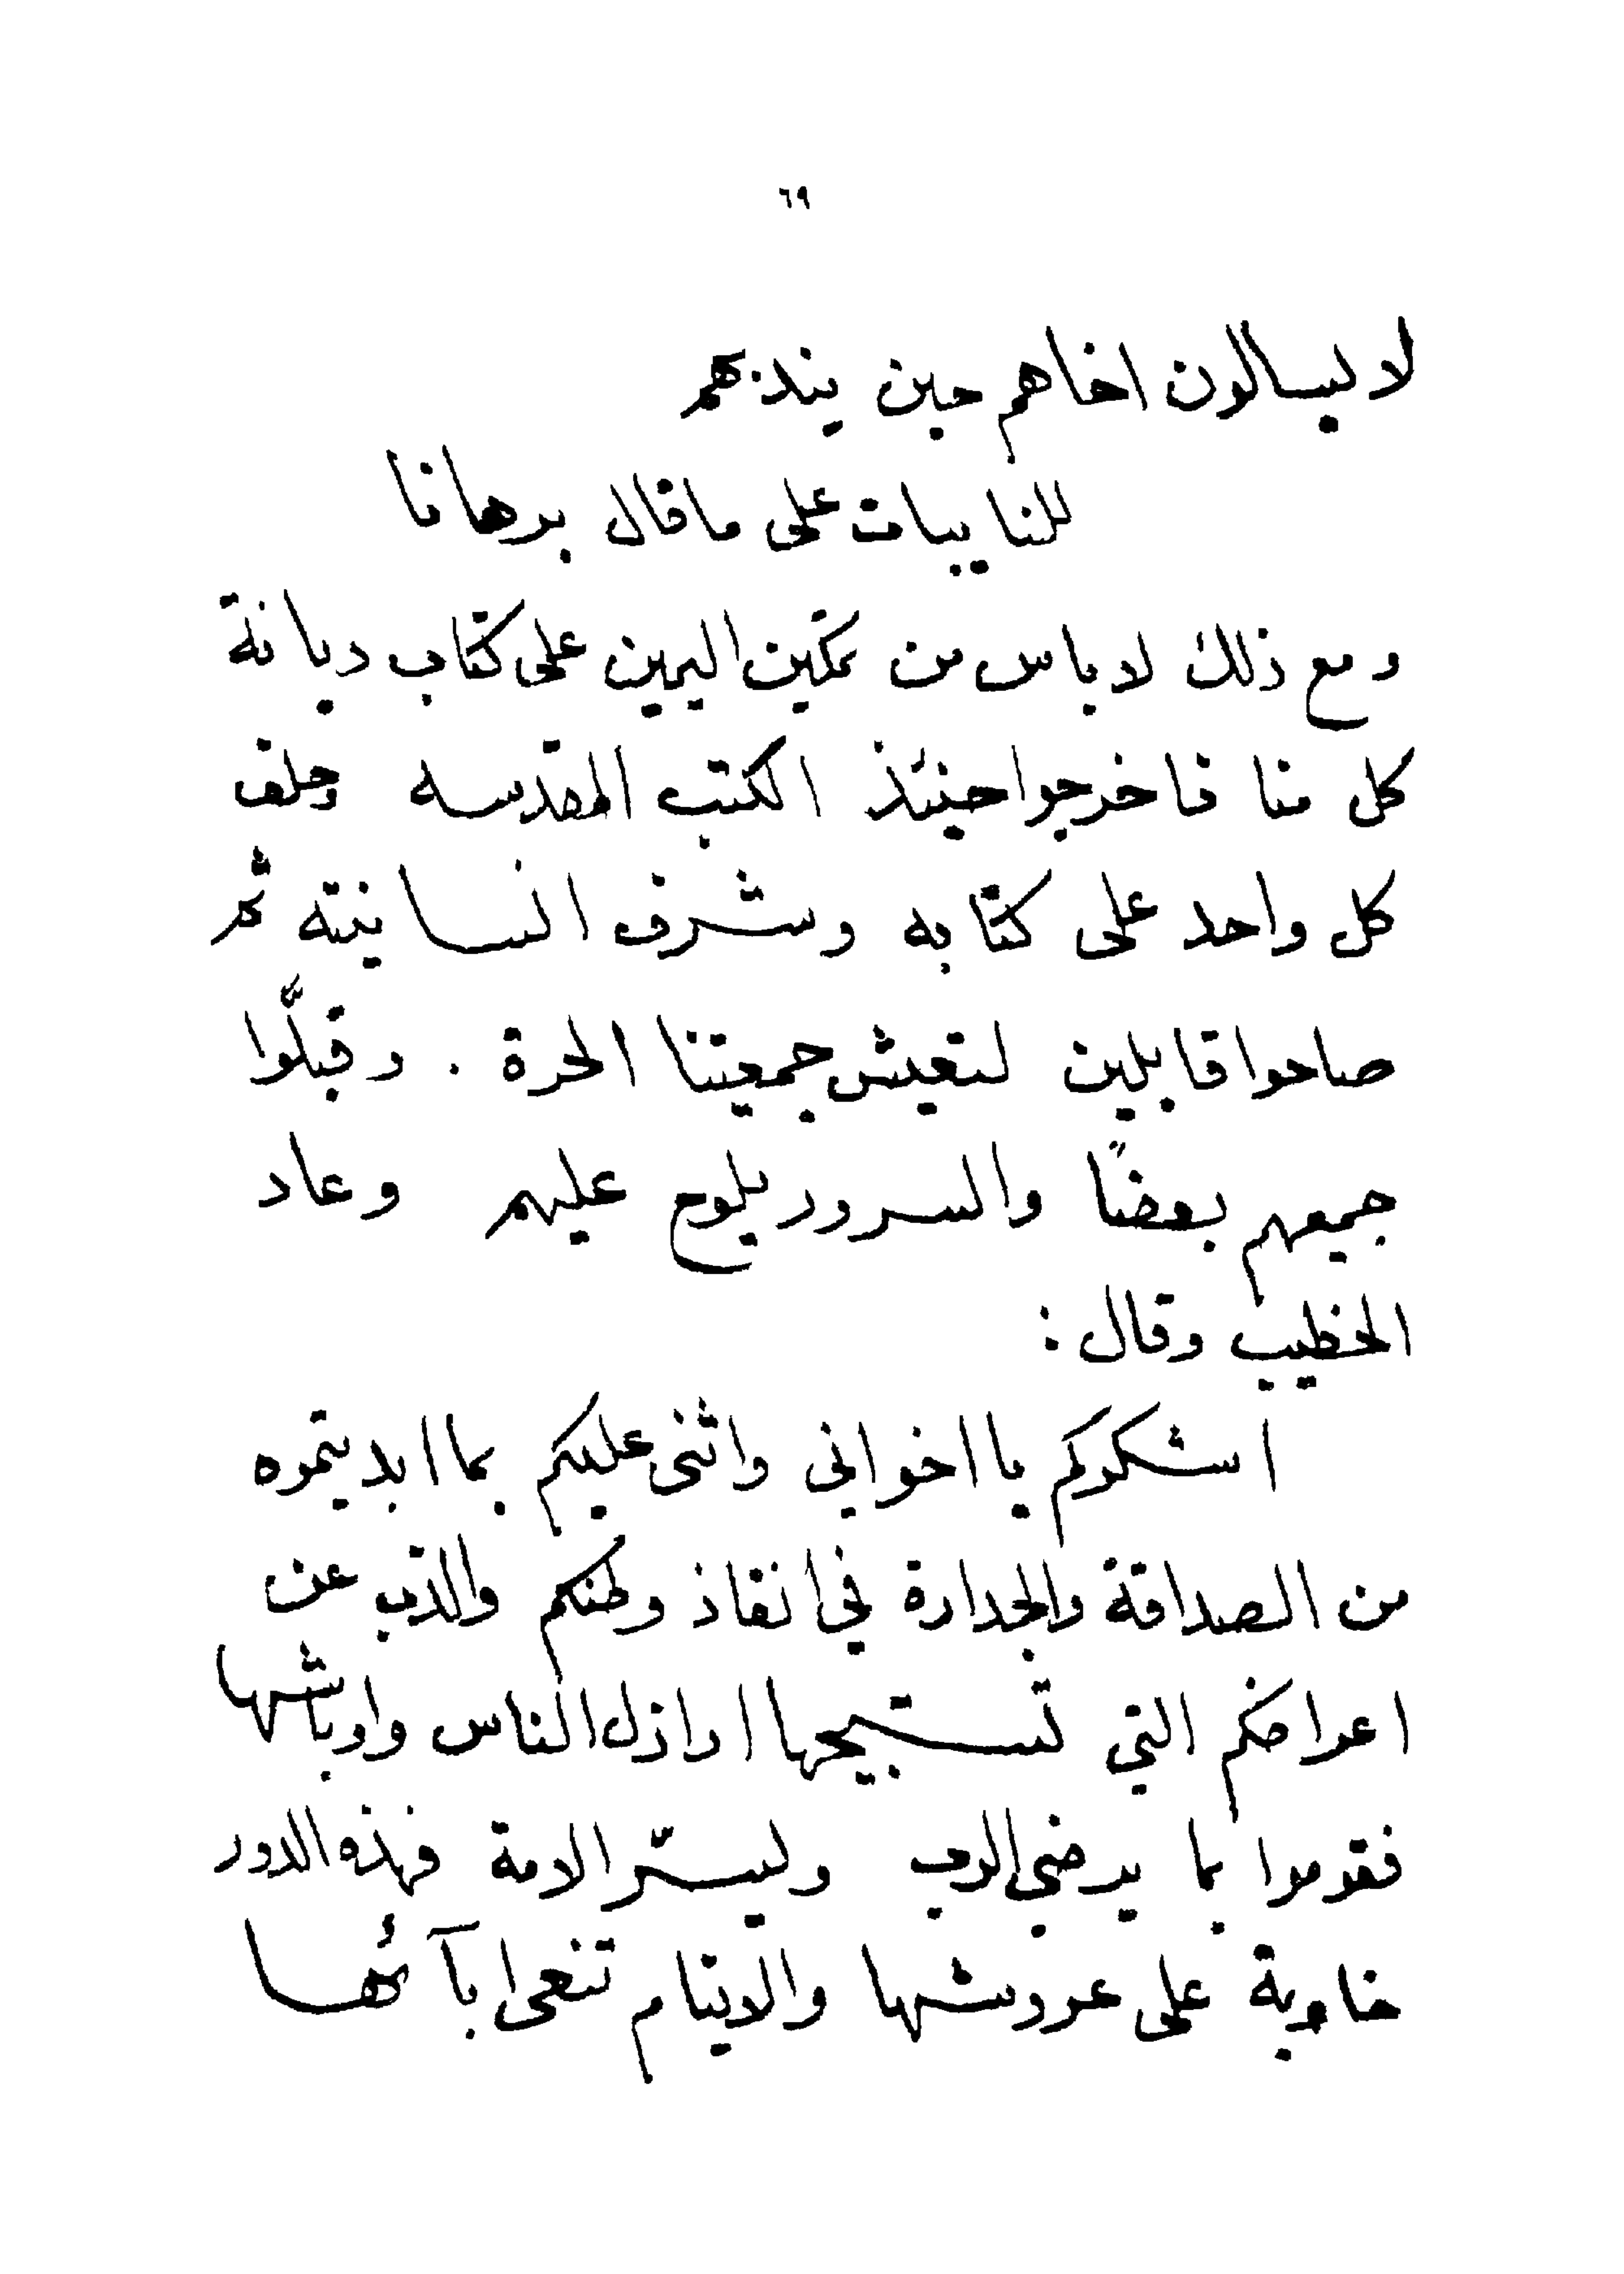 ٦٩
لا يسالون اخاهم حين يندبهم
للنايبات على ما قال برهانا
ومع ذلك لا باس من تمكين اليمين على كتاب ديانة
كل منا فاخرجوا حينئذ الكتب المقدسه وحلف
كل واحد على كتابه وشرف انسانيته ثم
صاحوا قايلين لتعيش جمعيتنا الحرة . وقبلّوا
جميعهم بعضاً والسرور يلوح عليهم وعاد
الخطيب وقال :
اشكركم يا اخواني واثنى عليكم بما ابديتموه
من الصداقة والجدارة في انقاذ وطنكم والذب عن
اعراضكم التي تستبيحها اراذل الناس واوباشها
فقوموا بما يرضي الرب ويسّر الامة فهذه الدور
خاوية على عروشها والايتام تنعى ابآئها